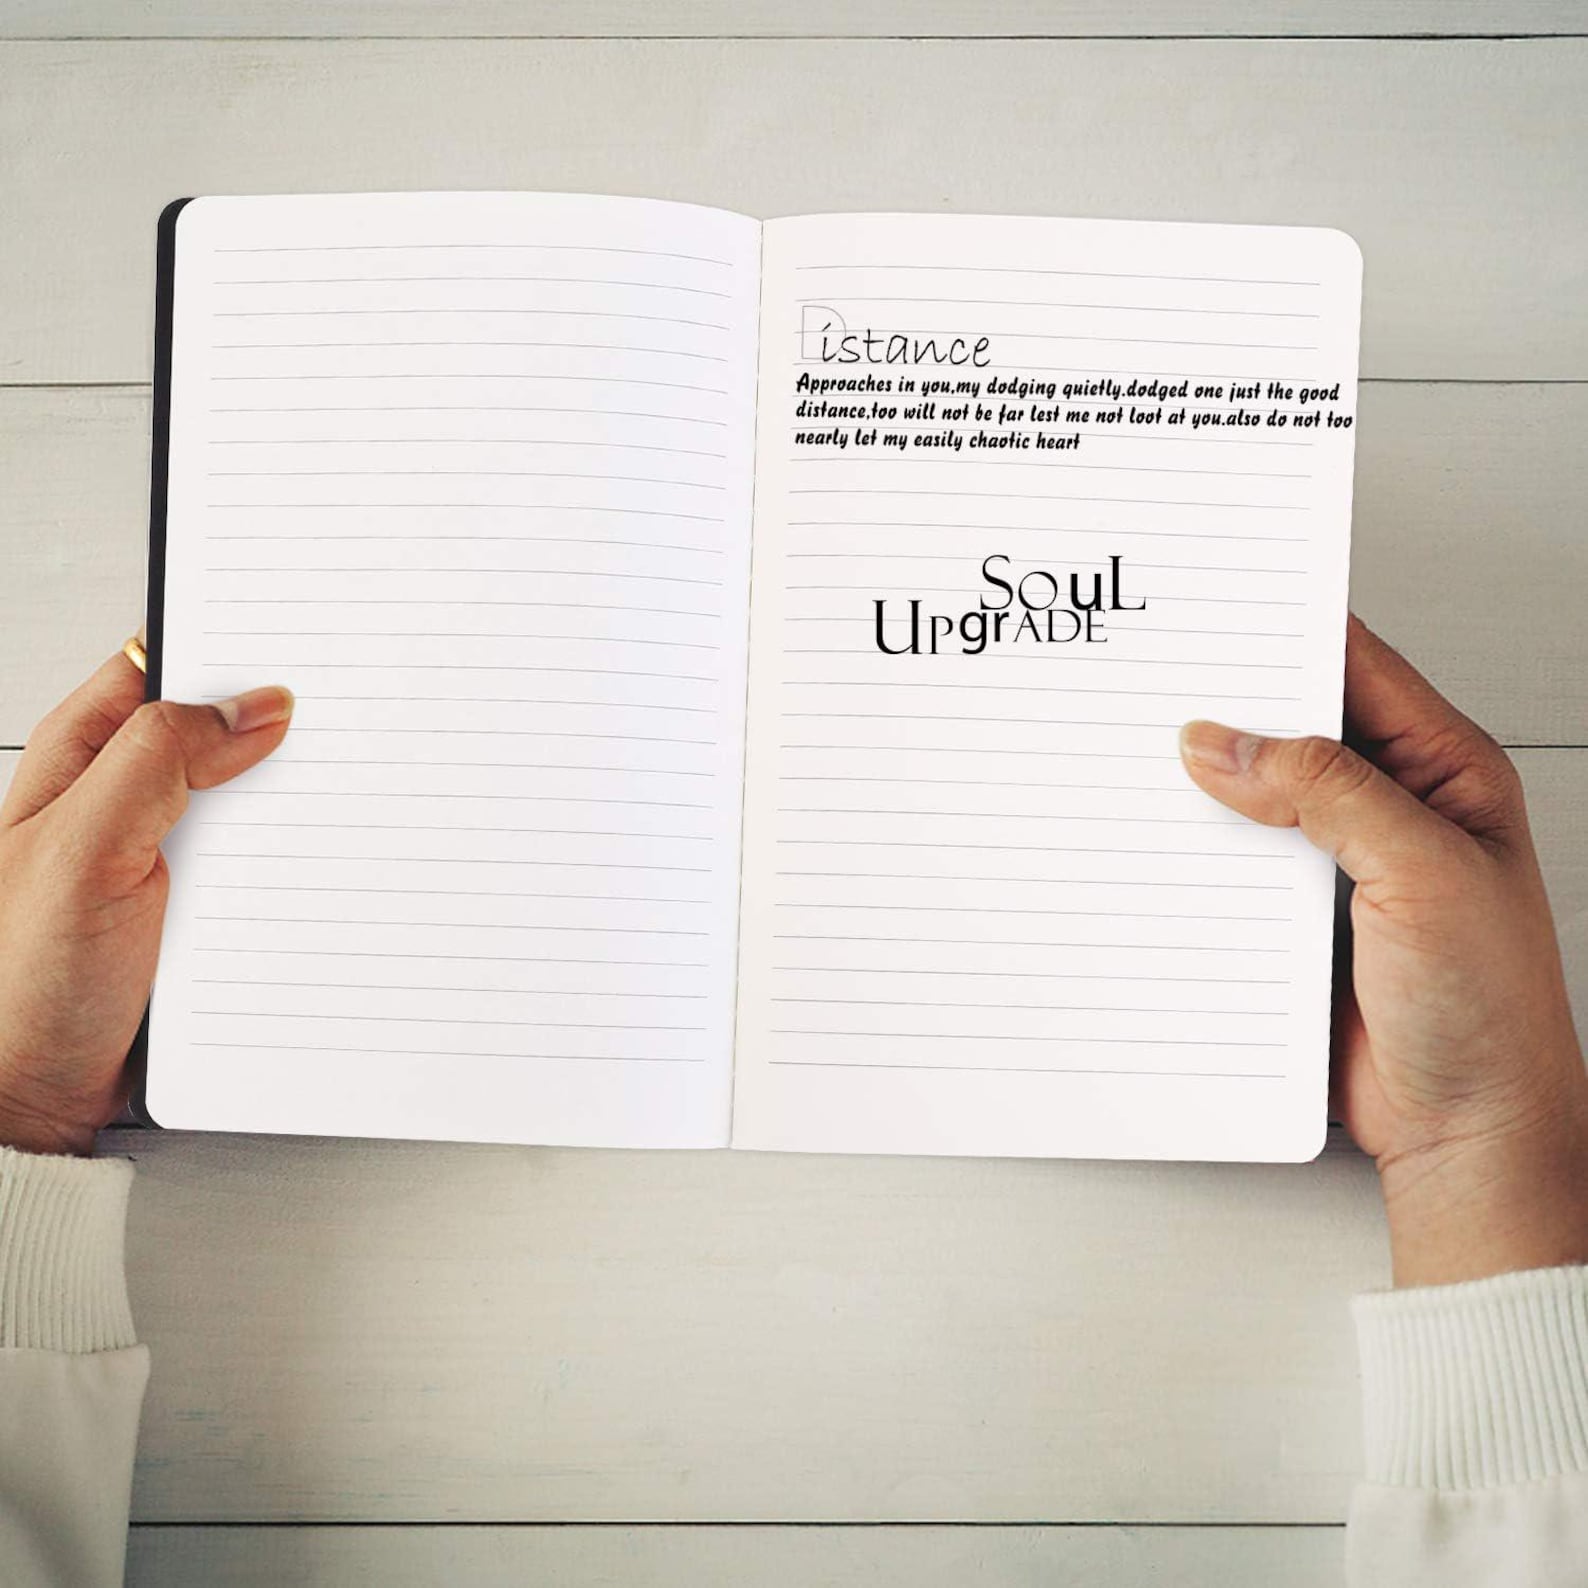 Distance
Approaches in you,my dodging quietly.dodged one just the good
distance,too will not be far lest me not loot at you.also do not too
nearly let my easily chaotic heart
SouL
UpgrADE